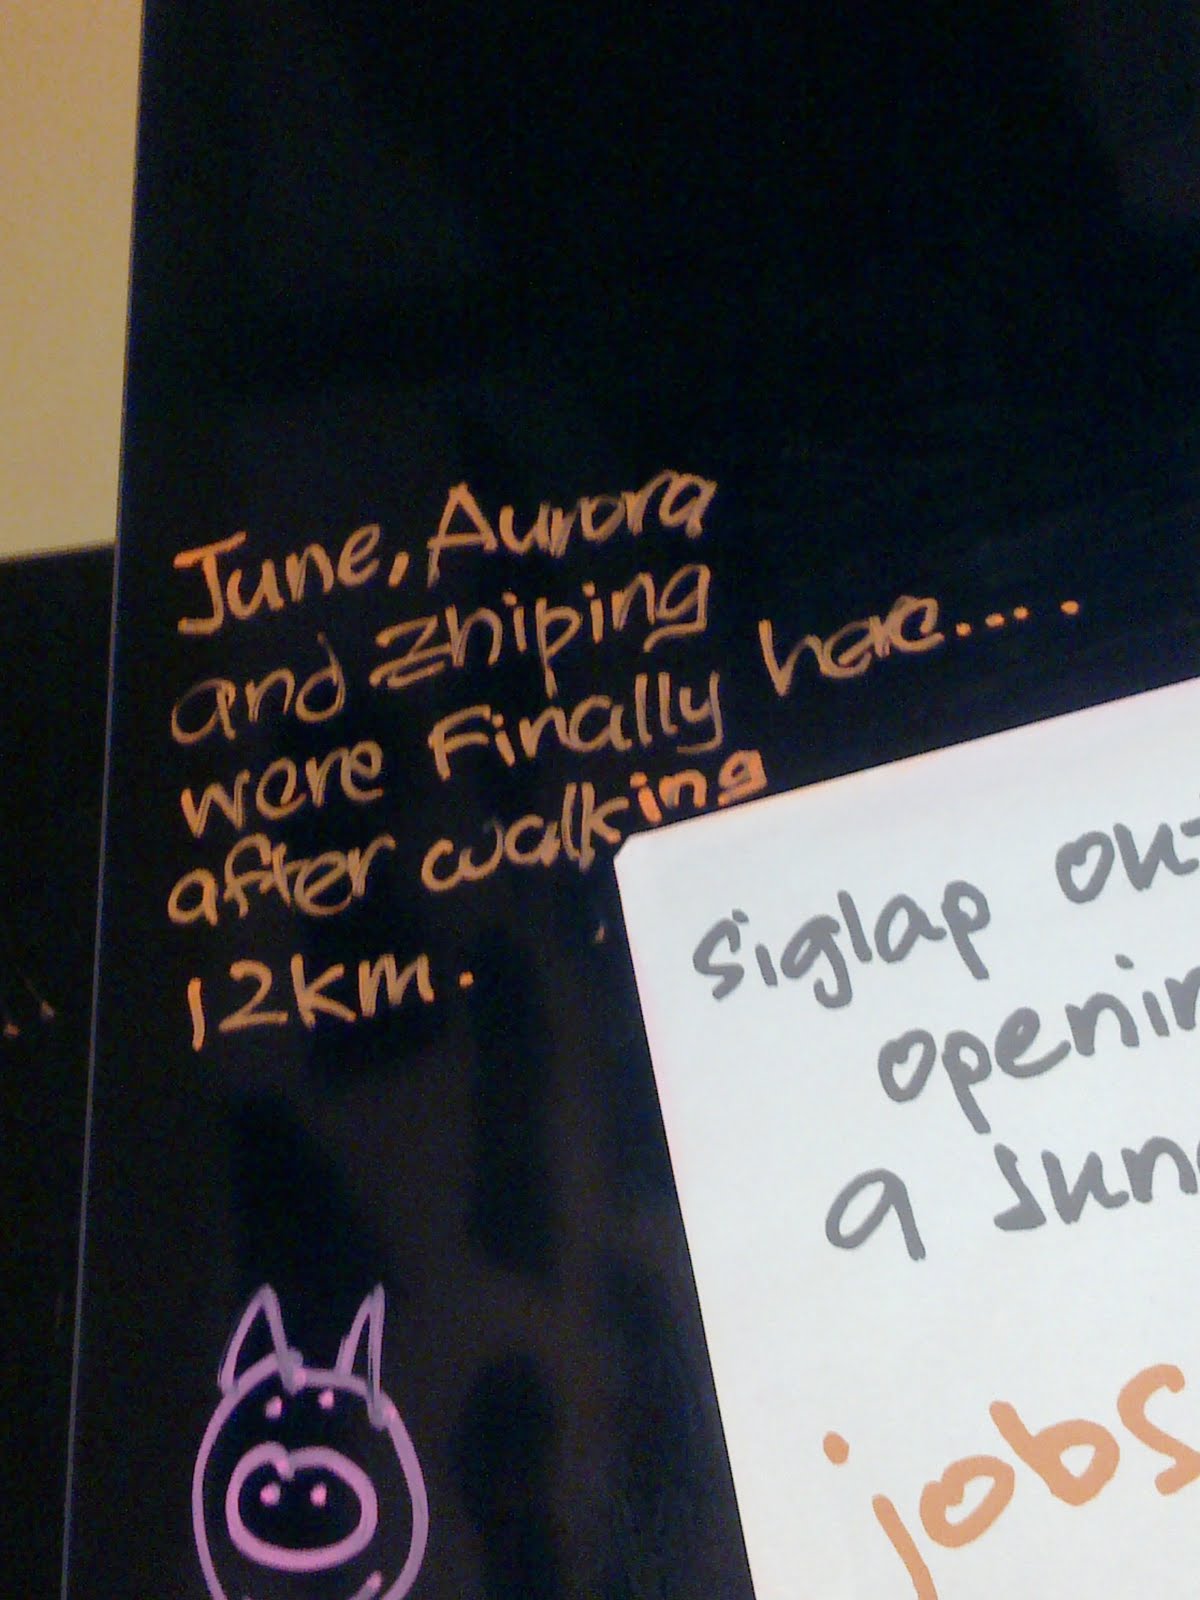 June, Aurora
and Zhiping
were Finally here.....
after walking
12km.
Siglap
a
jobs